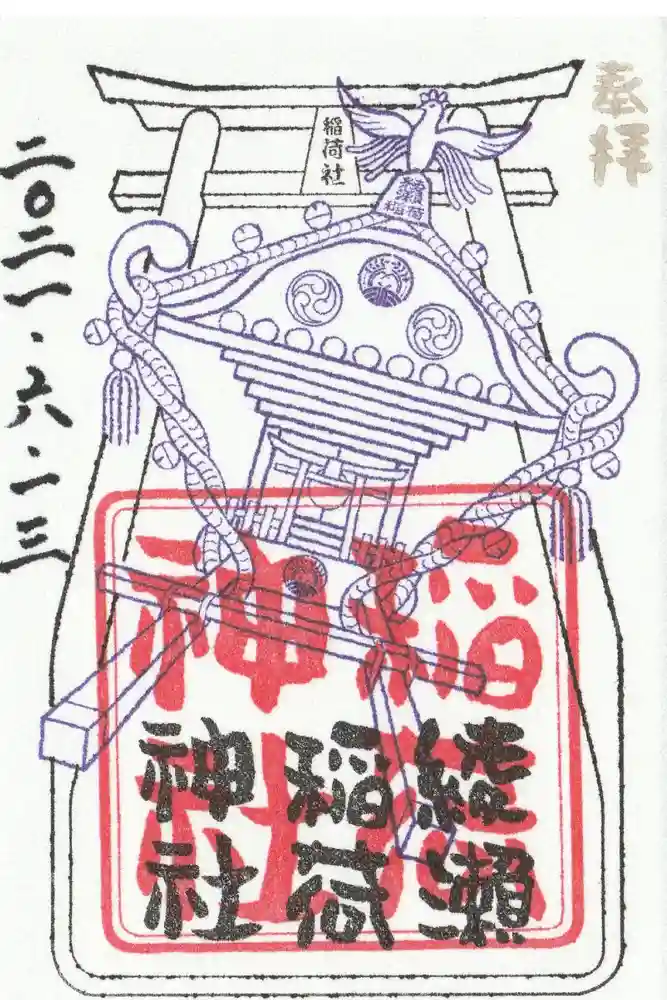 奉拝
稲荷社
綾瀬
稲荷
綾瀬
稲荷
神社
稲荷
神社
二〇二一・六・一三